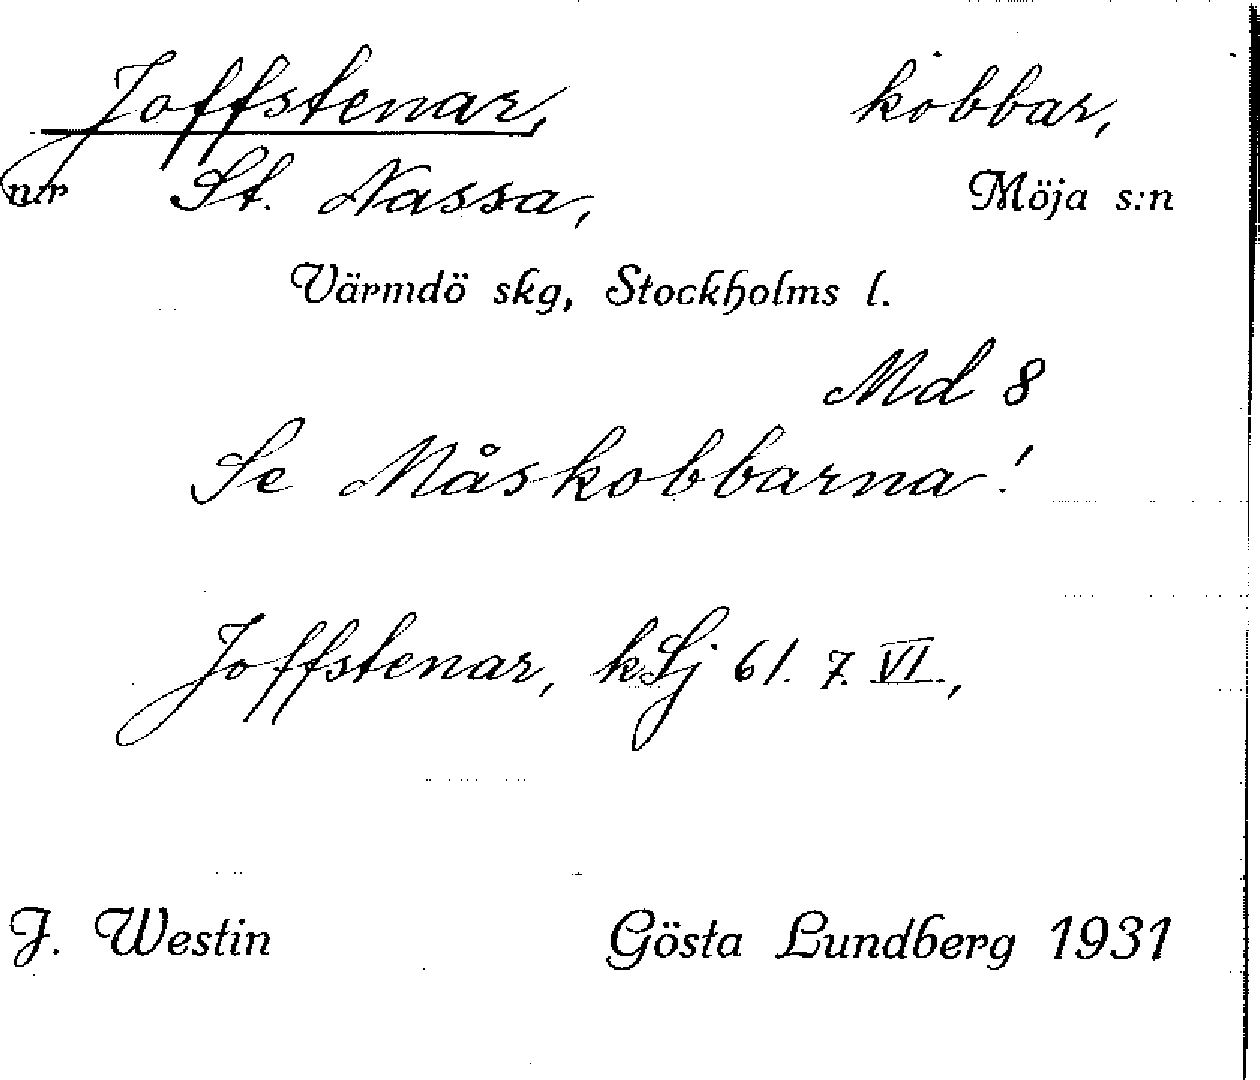 Joffstenar, kobbar,
nr St. Nassa, Möja s:n
Värmdö skg, Stockholms l.
Md 8
Se Måskobbarna!
Joffstenar, kSj 61. 7. VI.,
J. Westin Gösta Lundberg 1931